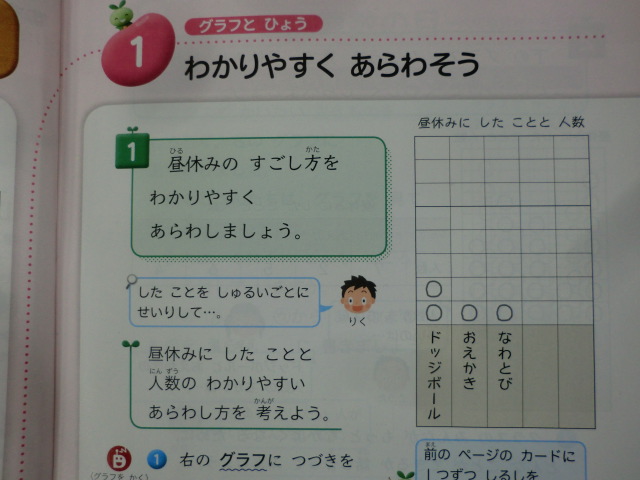 グラフと ひょう
1
わかりやすく あらわそう
1
昼休みの すごし方を
ひる かた
わかりやすく
あらわしましょう。
した ことを しゅるいごとに
せいりして…。
りく
昼休みに した ことと
人数の わかりやすい
にん ずう
あらわし方を 考えよう。
かんが
1 右の グラフに つづきを
(グラフを かく)
昼休みに した ことと 人数
ドッジボール
おえかき
なわとび
前の ページの カードに
まえ
1つずつ しるしを